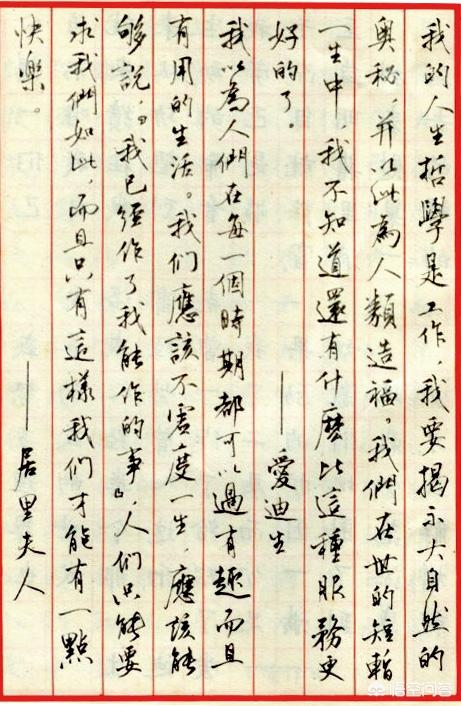 我的人生哲學是工作，我要揭示大自然的
奧秘，并以此為人類造福。我們在世的短暫
一生中，我不知道還有什麽比這種服務更
好的了。
——愛迪生
我以為人們在每一個時期都可以過有趣而且
有用的生活。我们應該不虛度一生，應該能
够說，『我已經作了我能作的事』，人们只能要
求我們如此，而且只有這樣我们才能有一點
快樂。
——居里夫人
悟空问答